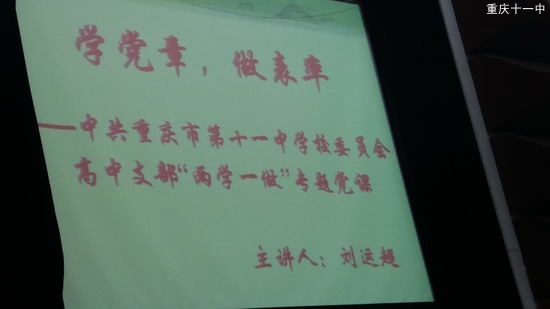 重庆十一中
学党章，做表率
——中共重庆市第十一中学校委员会
高中支部“两学一做”专题党课
主讲人：刘运超